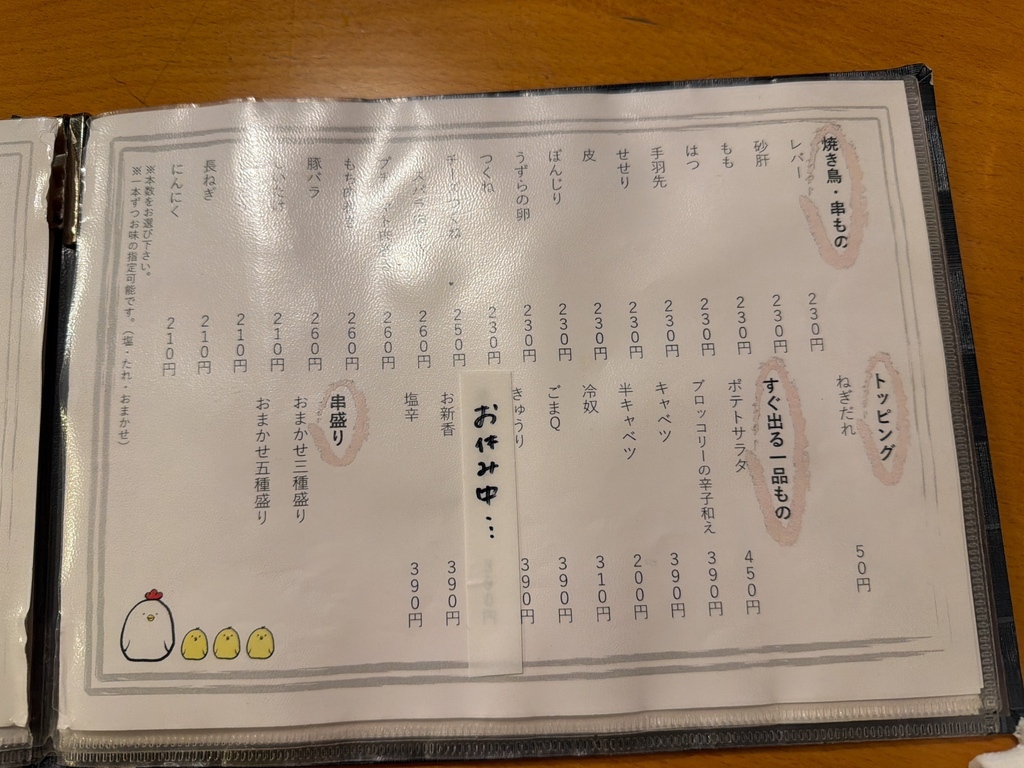 焼き鳥・串もの
レバー 230円
砂肝 230円
もも 230円
はつ 230円
手羽先 230円
せせり 230円
皮 230円
ぼんじり 230円
うずらの卵 230円
つくね 230円
チーズつくね 250円
スパラ 260円
プ ト肉 260円
もち肉巻き 260円
豚バラ 260円
いたけ 210円
210円
長ねぎ 210円
にんにく 210円
※本数をお選び下さい。
※一本ずつお味の指定可能です。（塩・たれ・おまかせ）
トッピング
ねぎだれ 50円
すぐ出る一品もの
ポテトサラダ 450円
ブロッコリーの辛子和え 390円
キャベツ 390円
半キャベツ 200円
冷奴 310円
ごまQ 390円
きゅうり 390円
お休み中…
お新香 390円
塩辛 390円
串盛り
おまかせ三種盛り
おまかせ五種盛り